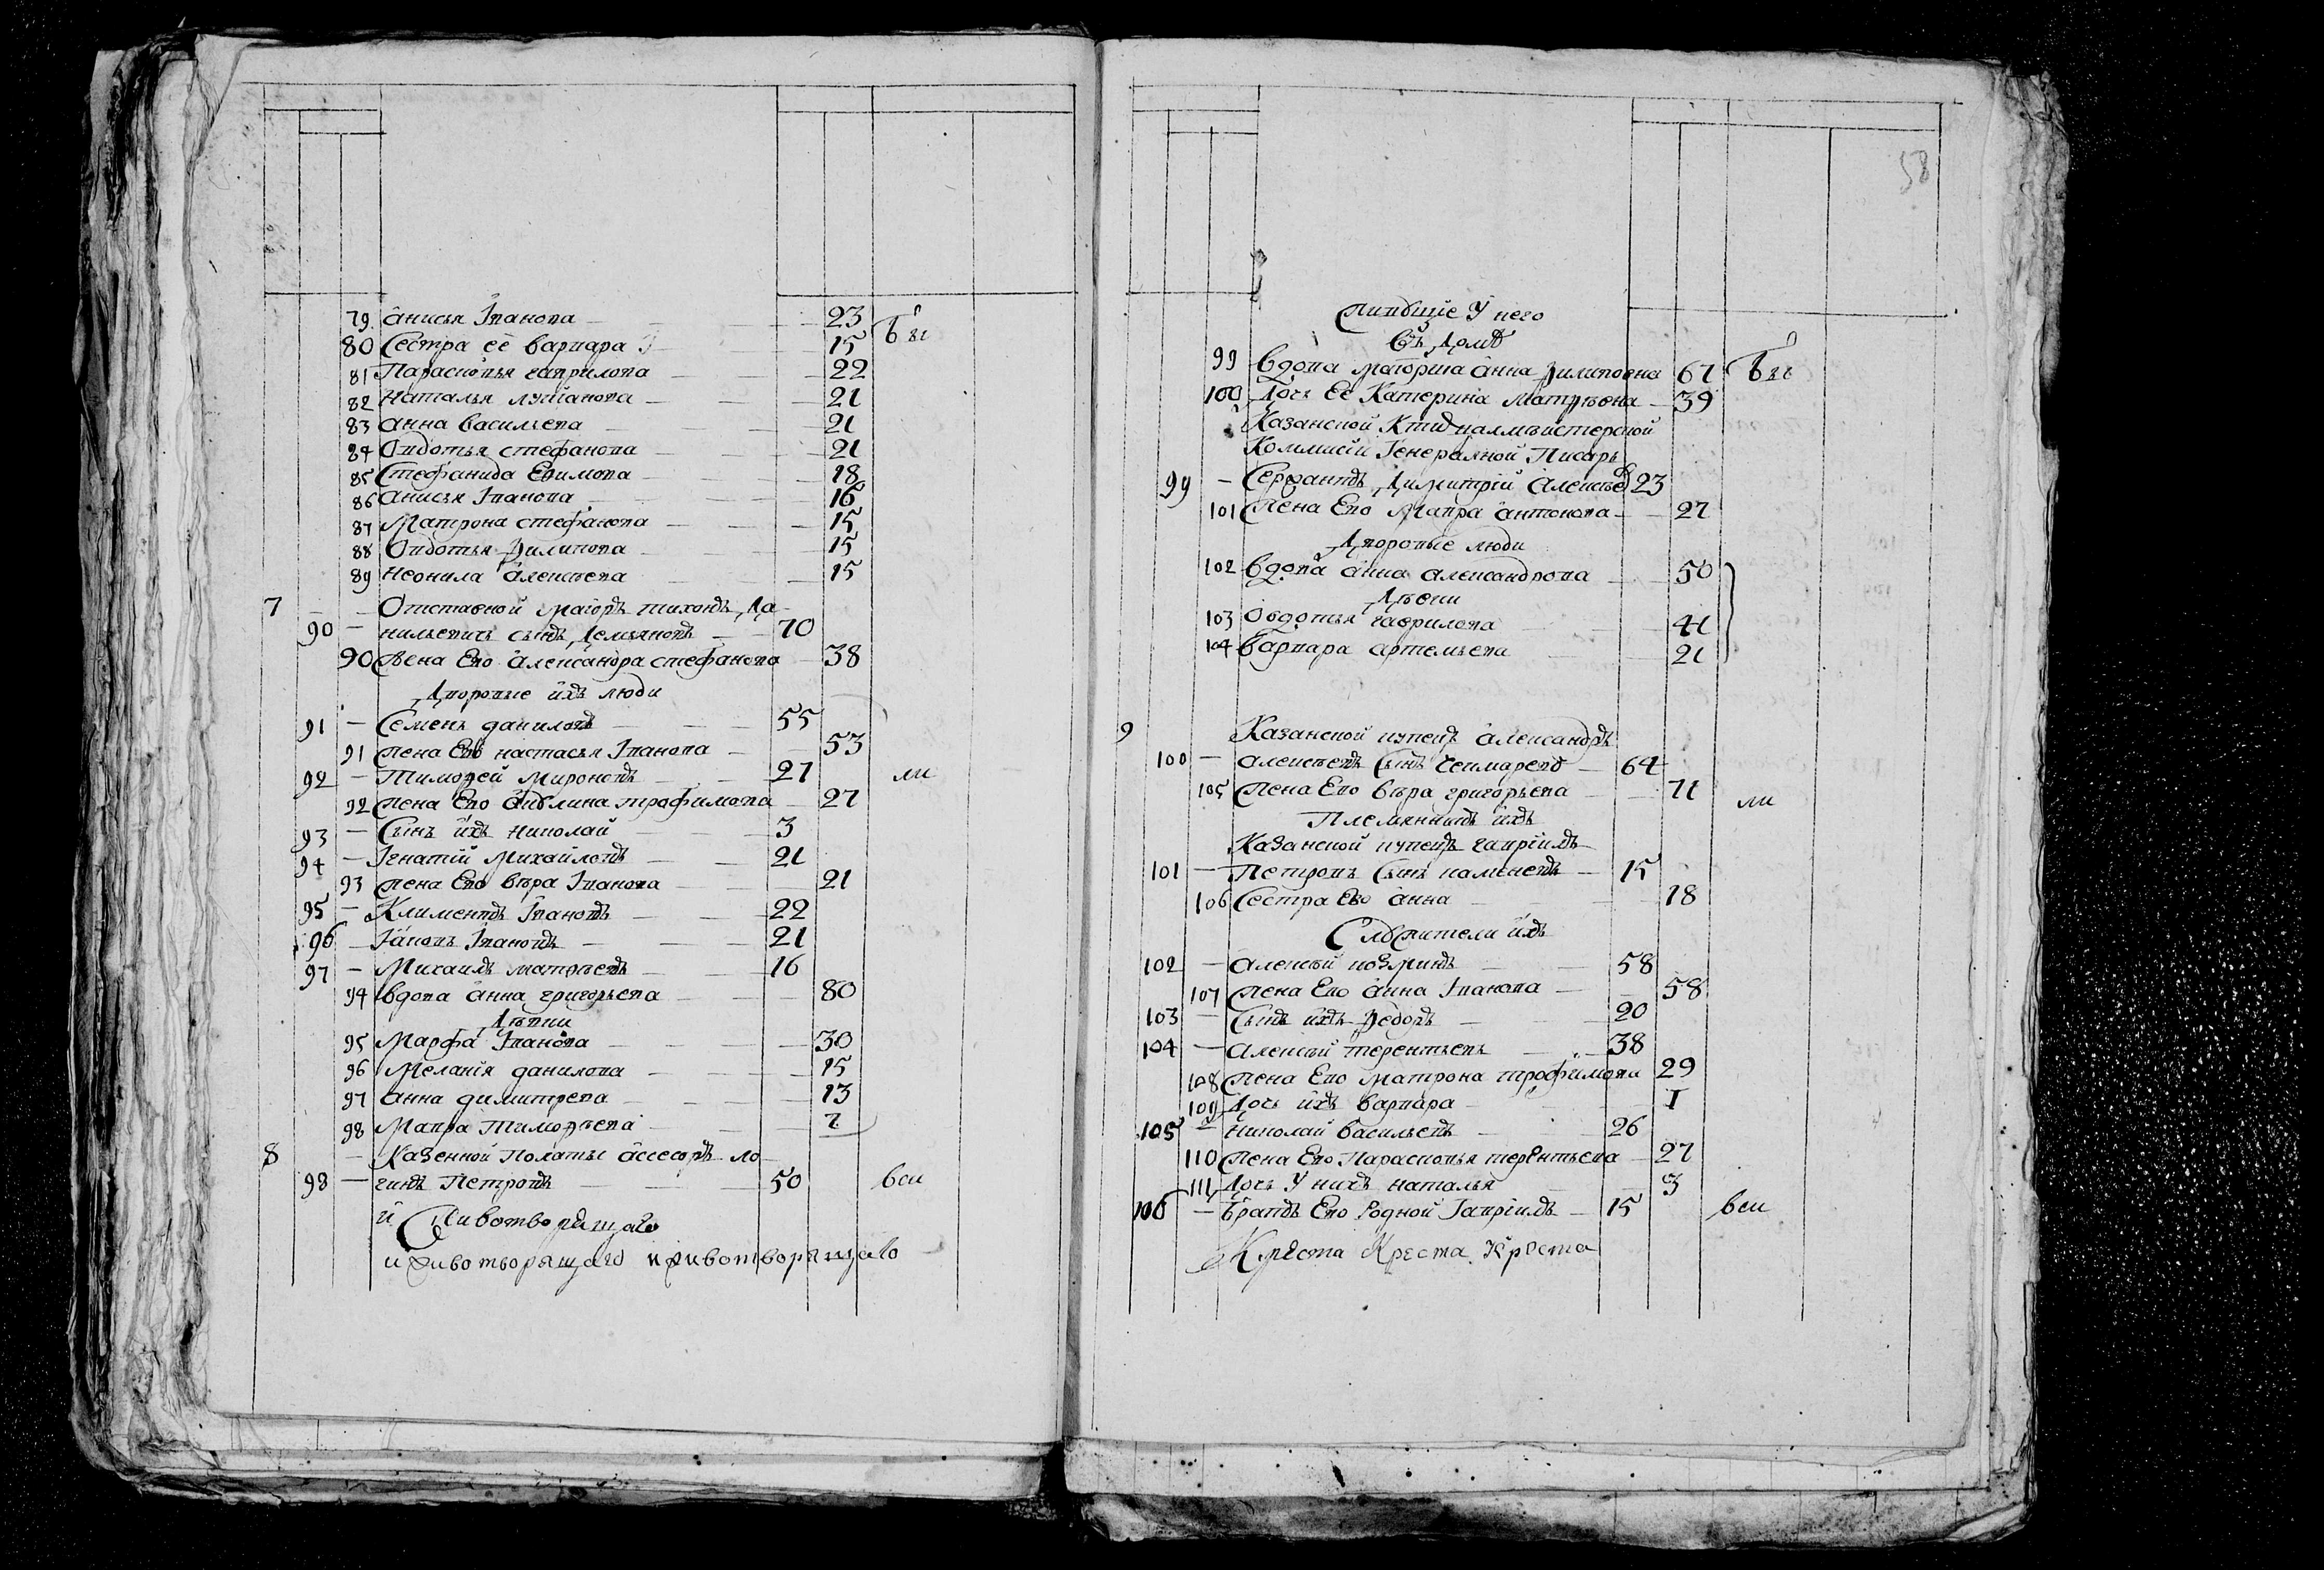 79 анисья Iванова 23
80 Сестра ее варвара 15 бы
81 Парасковья гаврилова 22
82 Наталья лутчанова 21
83 анна васильева 21
84 Овдотья стефанова 21
85 Стефанида Ефимова 18
86 анисья Iванова 16
87 Матрона стефанова 15
88 Овдотья Филипова 15
89 неонила алексѣева 15
7 — — Отставной маiоръ тихонъ Да
90 — нильевичь сынъ Демьяновъ 70
90 жена Ево александра стефанова 38
Дворовые ихъ люди
91 — Семенъ даниловъ 55
91 жена Ево настасья Iванова 53
92 — Тимофей мироновъ 27 ли
92 жена Ево акулина трофимова 27
93 — Сынъ ихъ николай 3
94 — Iгнатiй Михайловъ 21
93 жена Ево вѣра Iванова 21
95 — Климентъ Iвановъ 22
96 — Iаковъ Iвановъ 21
97 — Михаилъ матвѣевъ 16
94 вдова анна григорьева 80
Дѣвки
95 Марфа Iванова 30
96 Меланiя данилова 15
97 анна димитрева 13
98 Мавра Тимофѣева 7
8 — Казенной Полаты ассесоръ ло
98 — гинъ Петровъ 50 вси
и Животворящаго
и животворящаго и животворящаго
58
живущiе у него
въ домѣ
99 вдова маiорша анна Филиповна 67 бы
100 Дочь Ее Катерина матвѣевна 39
Казанской
Коммисiи Генеральной Писарь
99 — Сержантъ Димитрiй алексѣев 23
101 жена Ево мавра антонова 27
Дворовые люди
102 вдова анна александрова 50
Дѣвки
103 Овдотья гаврилова 41
104 варвара артемьева 21
9 Казанской купецъ александръ
100 — алексѣевъ Сынъ 64
105 жена Ево вѣра григорьева 71 ли
Племянникъ ихъ
Казанской купецъ гаврiилъ
101 — Петровъ Сынъ каменевъ 15
106 Сестра Ево анна 18
Служители ихъ
102 — алексѣй 58
107 жена Ево анна Iванова 58
103 — Сынъ ихъ Федоръ 20
104 — алексѣй терентьевъ 38
108 жена Ево матрона трофимова 29
109 Дочь ихъ варвара 1
105 — николай васильевъ 26
110 жена Ево Парасковья терентьева 27
111 Дочь у нихъ наталья 3
106 — братъ Ево родной Гаврiилъ 15 вси
Креста Креста Креста